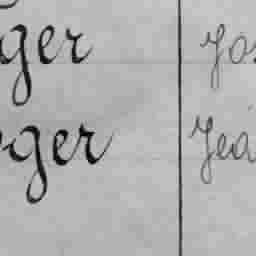 ger Jos
ger Jea